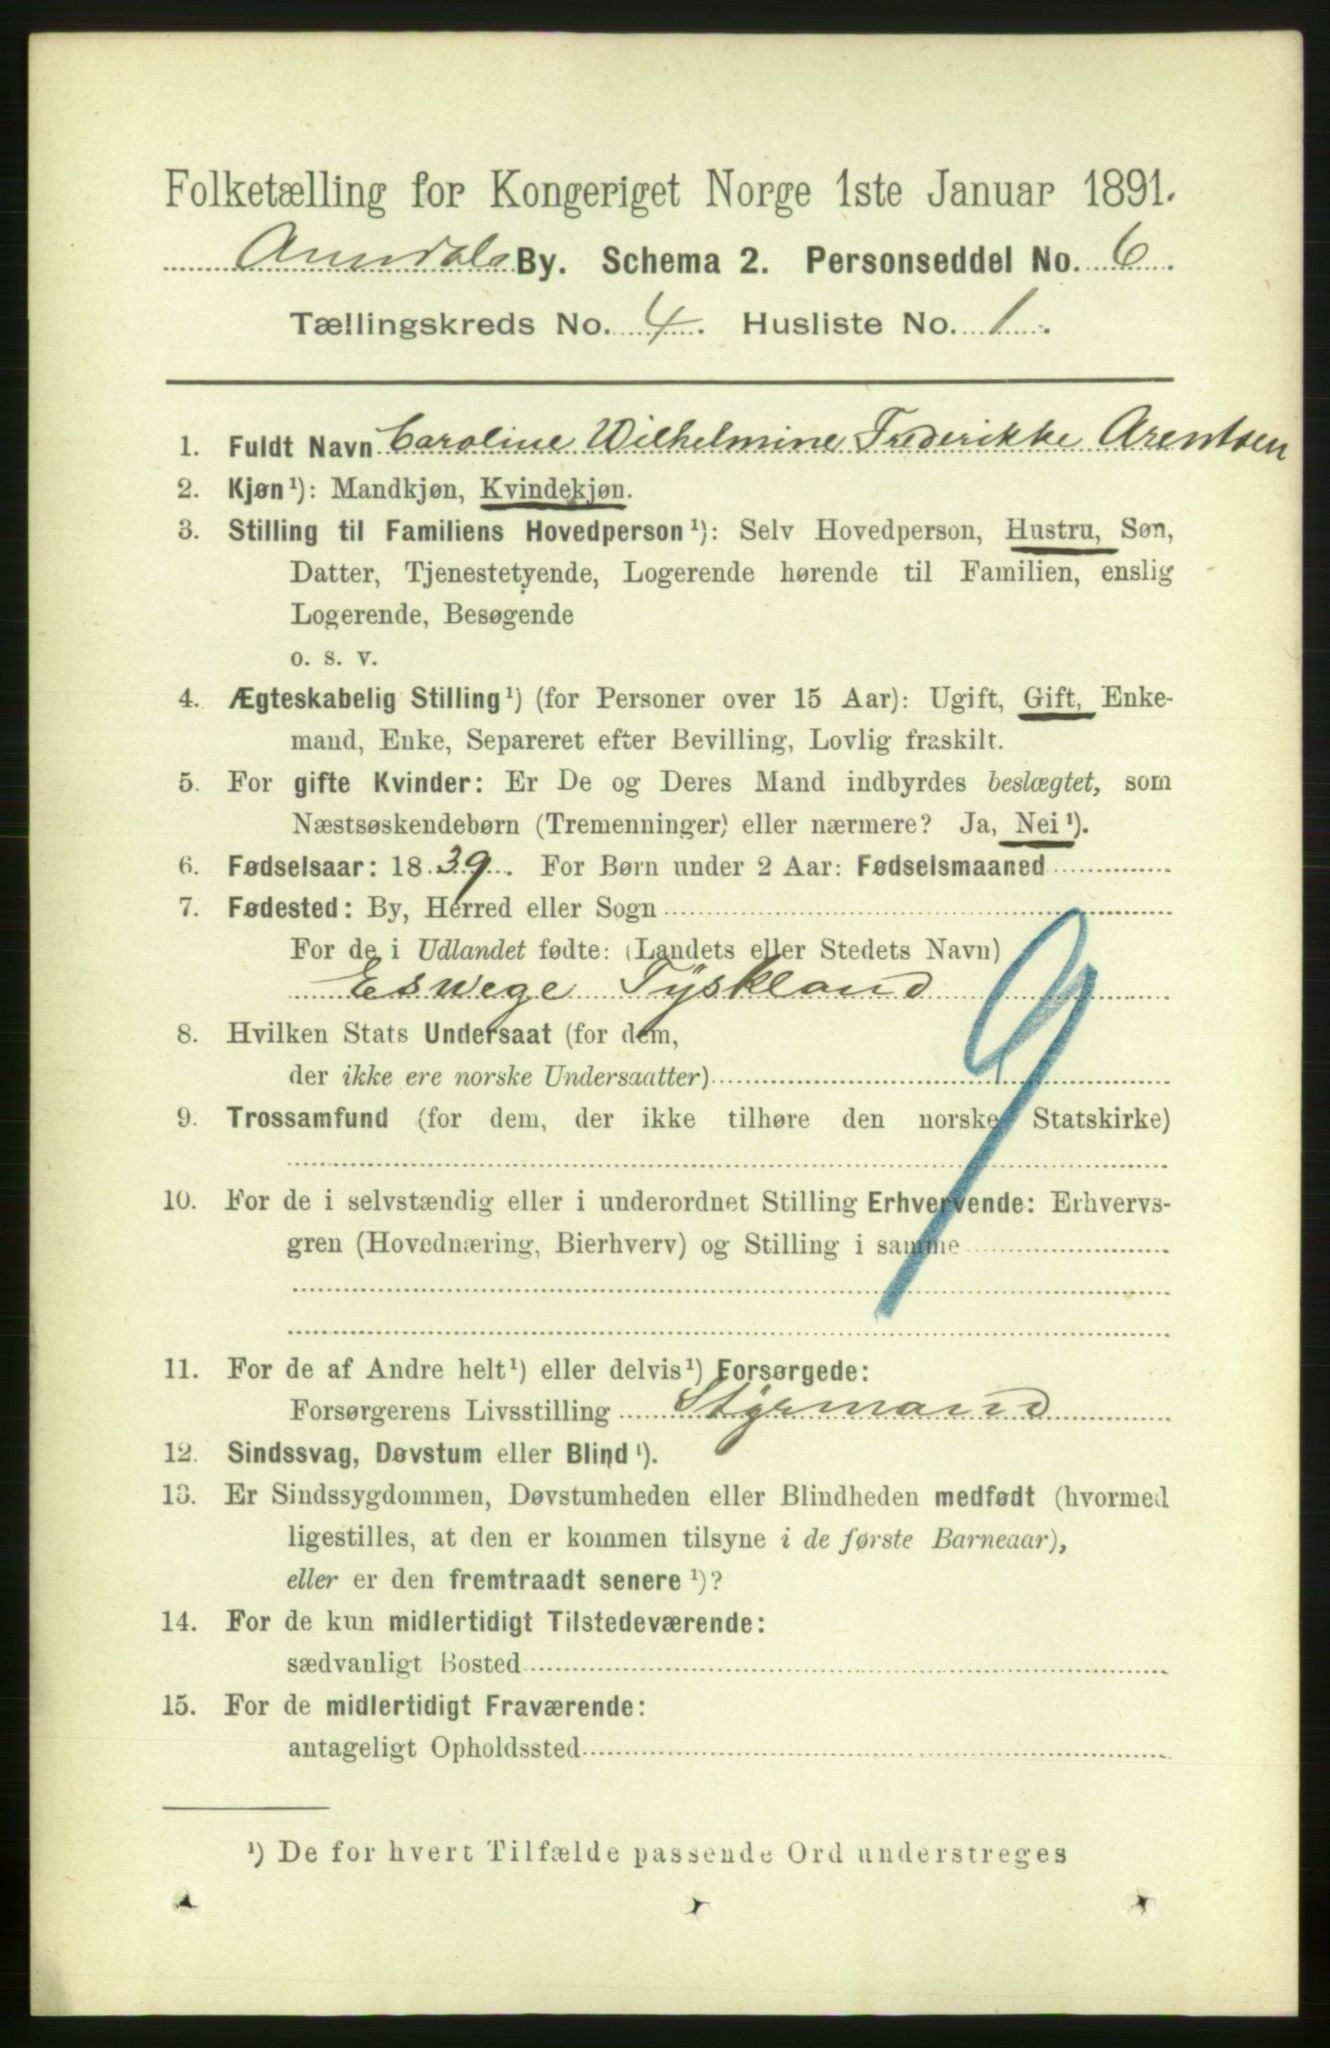 Folketælling for Kongeriget Norge 1ste Januar 1891.
Arendals By. Schema 2. Personseddel No. 6.
Tællingskreds No. 4. Husliste No. 1.
1. Fuldt Navn Caroline Wilhelmine Frederikke Arentsen
2. Kjøn¹): Mandkjøn, Kvindekjøn.
3. Stilling til Familiens Hovedperson¹): Selv Hovedperson, Hustru, Søn,
Datter, Tjenestetyende, Logerende hørende til Familien, enslig
Logerende, Besøgende
o. s. v.
4. Ægteskabelig Stilling¹) (for Personer over 15 Aar): Ugift, Gift, Enke-
mand, Enke, Separeret efter Bevilling, Lovlig fraskilt.
5. For gifte Kvinder: Er De og Deres Mand indbyrdes beslægtet, som
Næstsøskendebørn (Tremenninger) eller nærmere? Ja, Nei¹).
6. Fødselsaar: 1839. For Børn under 2 Aar: Fødselsmaaned
7. Fødested: By, Herred eller Sogn
For de i Udlandet fødte: (Landets eller Stedets Navn)
Eswege Tyskland
8. Hvilken Stats Undersaat (for dem,
der ikke ere norske Undersaatter)
9. Trossamfund (for dem, der ikke tilhøre den norske Statskirke)
9
10. For de i selvstændig eller i underordnet Stilling Erhvervende: Erhvervs-
gren (Hovednæring, Bierhverv) og Stilling i samme
11. For de af Andre helt¹) eller delvis¹) Forsørgede:
Forsørgerens Livsstilling Styrmand
12. Sindssvag, Døvstum eller Blind¹).
13. Er Sindssygdommen, Døvstumheden eller Blindheden medfødt (hvormed
ligestilles, at den er kommen tilsyne i de første Barneaar),
eller er den fremtraadt senere¹)?
14. For de kun midlertidigt Tilstedeværende:
sædvanligt Bosted
15. For de midlertidigt Fraværende:
antageligt Opholdssted
¹) De for hvert Tilfælde passende Ord understreges